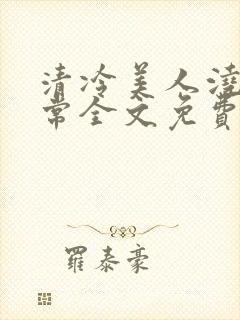 清冷美人澆
常全文免費
羅泰豪